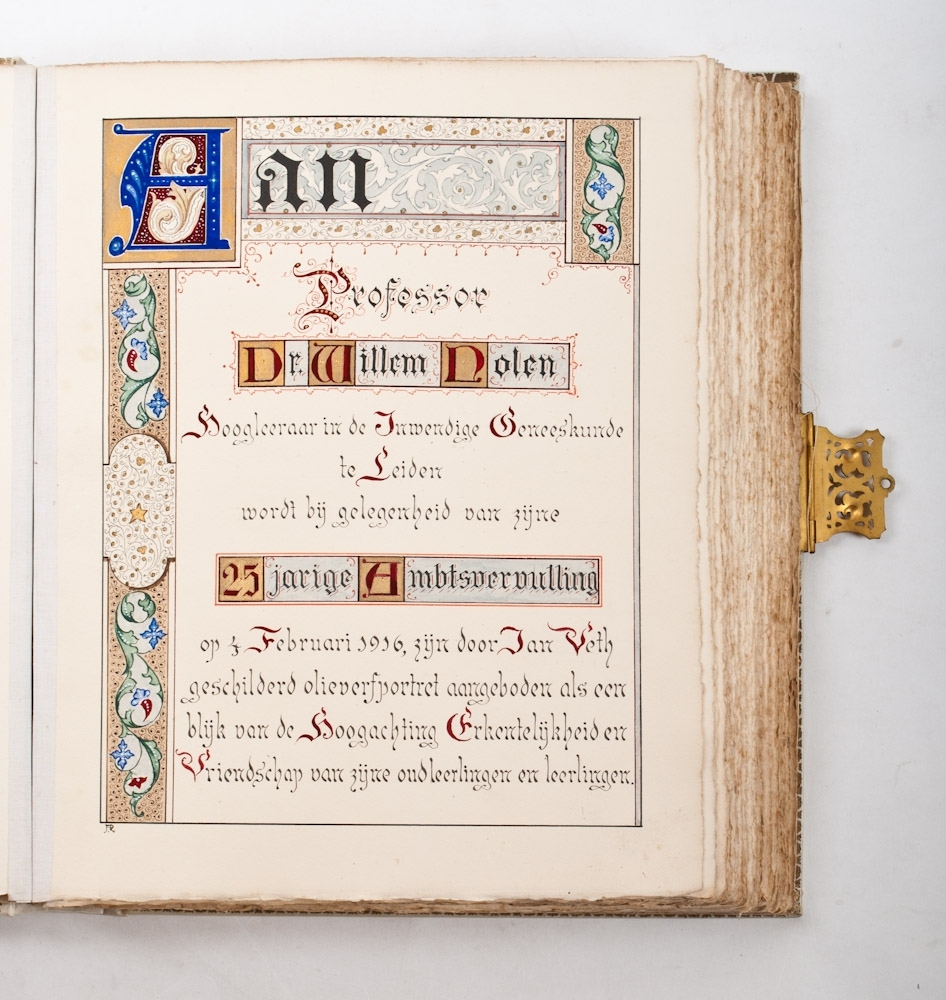 Aan
Professor
Dr. Willem Nolen
Hoogleeraar in de Inwendige Geneeskunde
te Leiden
wordt bij gelegenheid van zijne
25 jarige Ambtsvervulling
op 4 Februari 1916, zijn door Jan Veth
geschilderd olieverfportret aangeboden als een
blijk van de Hoogachting Erkentelijkheid en
Vriendschap van zijne oudleerlingen en leerlingen.